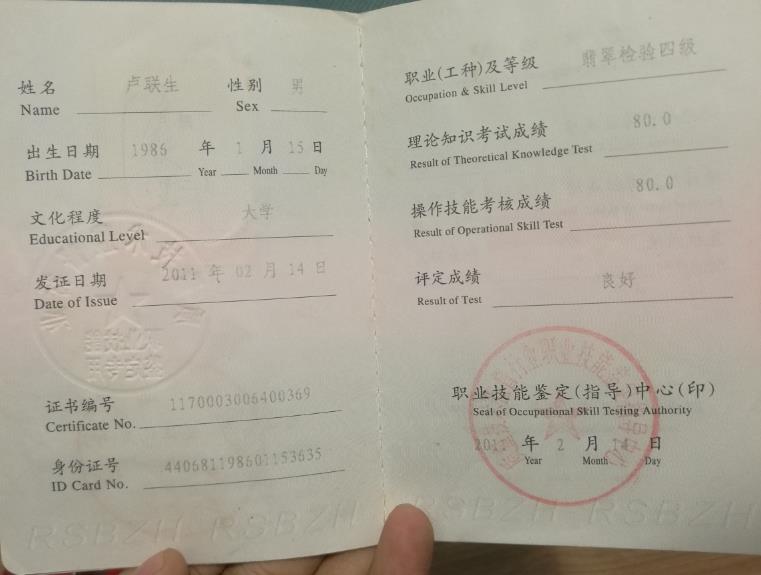 姓名 卢联生 性别 男
Name Sex
出生日期 1986 年 1 月 15 日
Birth Date Year Month Day
文化程度 大学
Educational Level
发证日期 2011 年 02 月 14 日
Date of Issue
证书编号 1170003006400369
Certificate No.
身份证号 440681198601153635
ID Card No.
RSBZH RSBZH
职业(工种)及等级 翡翠检验四级
Occupation & Skill Level
理论知识考试成绩 80.0
Result of Theoretical Knowledge Test
操作技能考核成绩 80.0
Result of Operational Skill Test
评定成绩 良好
Result of Test
职业技能鉴定(指导)中心(印)
Seal of Occupational Skill Testing Authority
2011 年 2 月 14 日
Year Month Day
RSBZH RSBZH